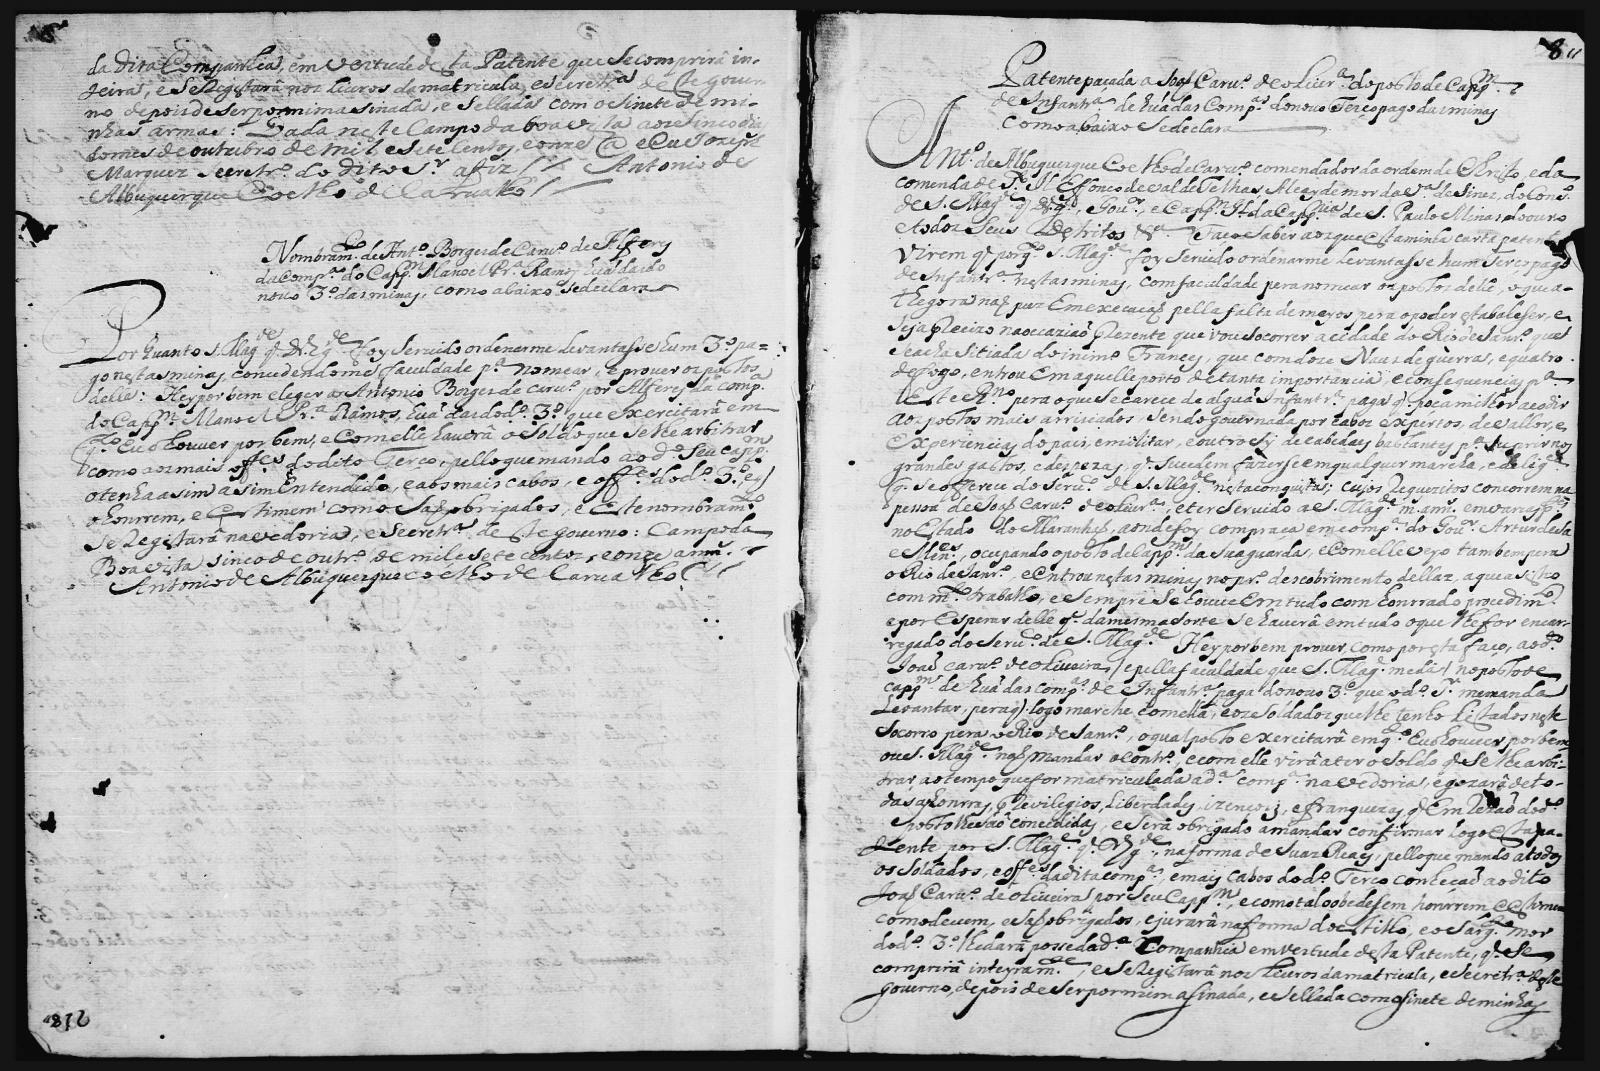 da dita Companhia, em vertude desta Patente que se comprirâ in-
teira, e se Registarâ nos livros da matricula, e secretr.ª deste gover-
no depois de ser por mim asinada, e sellada com o sinete de mi-
nhas armas: Dada neste Campo da boa vista aos sinco dias
do mes de outubro de mil e sete centos, e onze @ e Eu Joseph
Marques secretr.º do dito S.r a fiz // Antonio de
Albuquerque Coelho de Carvalho //
Nombram.to de Ant.º Borges de Carv.º de Alferes
da Comp.ª do Capp.m Manoel Pr.ª Ramos huã das do
novo 3.º das minas, como abaixo se declara
Por quanto S. Mag.de q. D.s g.de foy servido ordenarme levantasse hum 3.º pa-
go nestas minas, concedendome faculdade p.ª nomear, e prover os postos
delle: Hey por bem eleger a Antonio Borges de carv.º por Alferes da comp.ª
do Capp.m Manoel Pr.ª Ramos, huã das do d.º 3.º que exercitarâ em
q.to Eu o houver por bem, e com elle haverâ o soldo que se lhe arbitrar
como aos mais off.es do dito Terço, pello que mando ao d.º seu capp.m
o tenha asim asim Entendido, e aos mais cabos, e off.es do d.º 3.º, e q
o honrrem, e Estimem como saõ obrigados, e Este nombram.to
se Registarâ na vedoria, e secretr.ª deste governo: Campo da
Boa vista sinco de outr.º de mil e sete centos, e onze annos. //
Antonio de Albuquerque coelho de Carvalho //
812
811
Patente paçada a Joaõ Carv.º de oliver.ª do posto de Capp.m
de Infantr.ª de huã das Comp.as do novo Terço pago das minas
Como abaixo se declara
Ant.º de Albuquerque Coelho de Carv.º comendador da ordem de Christo, e da
comenda de S.to Ill Effonco de val de Telhas Alcayde mor da v.ª de Sines, do Cons.º
de S. Mag.de q D.s g.de, Gov.or, e Capp.m G.l da Capp.nia de S. Paulo Minas do ouro
e todos seus Destritos &.ª Faço saber aos que esta minha carta patente
virem q por q.to S. Mag.de foy servido ordenarme levantasse hum terço pago
de Infantr.ª nestas minas, com faculdade pera nomear os postos delle, o que a-
thegora naõ puz Em execuçaõ pella falta de meyos pera o poder estabaleser, e
seja Preciso na occaziaõ prezente que vou socorrer a cidade do Rio de Janr.º que
se acha sitiada do inim.º Frances, que com doze Naus de guerra, e quatro
de fogo, entrou Em aquelle porto de tanta importancia, e consequencias p.ª
Este R.no pera o que se carece de alguã Infantr.ª paga q. poça milhor acodir
aos postos mais arriscados, sendo governada por cabos expertos, de vallor, e
Experiencias do pais, e militar, e outro sy de cabedais bastantes p.ª suprir nos
grandes gastos, e despezas, q. sucedem fazerse em qualquer marcha, e delig.ª
q. se offerece do serv.º de S. Mag.de nesta conquista; cujos Requezitos concorrem na
pessoa de Joaõ Carv.º de oliver.ª, e ter servido a S. Mag.de m. an.
no Estado do Maranhaõ, aonde foy com praça em comp.ª do Gov.or Artur de sa
e Men.es, ocupando o posto de Capp.m da sua guarda, e com elle veyo tambem pera
o Rio de Janr.º, e entrou nestas minas no pr.º descobrimento dellas, a que asistio
com m.to trabalho, e sempre se houve Em tudo com honrrado procedim.to
e por Esperar delle q. da mesma sorte se haverâ em tudo o que lhe for encar-
regado do serv.º de S. Mag.de Hey por bem prover, como por esta faço, ao d.º
Joaõ carv.º de oliveira / e pella faculdade que S. Mag.de me dâ / no posto de
capp.m de huã das comp.as de Infantr.ª paga do novo 3.º que o d.º S.r me manda
Levantar, pera q. logo marche com ella, e os soldados que lhe tenho Listados neste
socorro pera o Rio de Janr.º, o qual posto exercitarâ em q.to Eu o houver por bem
ou S. Mag.de naõ mandar o contr.º, e com elle virâ a ter o soldo q se lhe arbi-
trar, ao tempo que for matriculada a d.ª comp.ª na vedoria, e gozarâ de to-
das as honrras, previlegios, liberdades, izençois, e franquezas, q Em Rezaõ do d.º
posto lhe saõ concedidas, e serâ obrigado a mandar confirmar logo esta pa-
tente por S. Mag.de q. D.s g.de, na forma de suas Reais, pello que mando a todos
os soldados, e off.es da dita comp.ª e mais cabos do d.º Terço conheçaõ ao dito
Joaõ Carv.º de oliveira por seu Capp.m, e como tal o obedesem, honrrem e Estimem
como devem, e saõ obrigados, e jurarâ na forma do estillo, e o sarg.to mor
do d.º 3.º lhe darâ posse da d.ª Companhia em vertude desta Patente, q. se
comprirâ inteyram.te, e se Registarâ nos Livros da matricula, e secretr.ª deste
governo, depois de ser por mim asinada, e sellada com o sinete de minhas